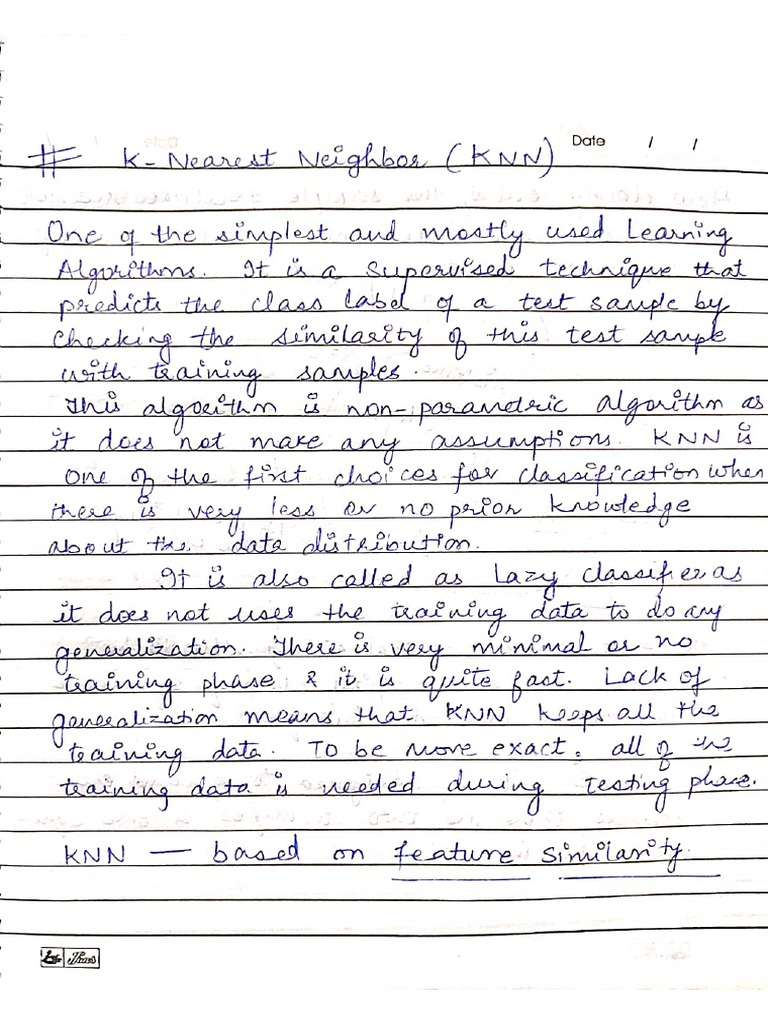 Date / /
# K-Nearest Neighbor (KNN)
One of the simplest and mostly used Learning
Algorithms. It is a Supervised technique that
predicts the class label of a test sample by
Checking the similarity of this test sample
with training samples.
This algorithm is non-parametric algorithm as
it does not make any assumptions. KNN is
one of the first choices for classification when
there is very less or no prior knowledge
about the data distribution.
It is also called as Lazy Classifier as
it does not uses the training data to do any
generalization. There is very minimal or no
training phase & it is quite fast. Lack of
generalization means that KNN keeps all the
training data. To be more exact, all of the
training data is needed during Testing phase.
KNN — based on feature Similarity.